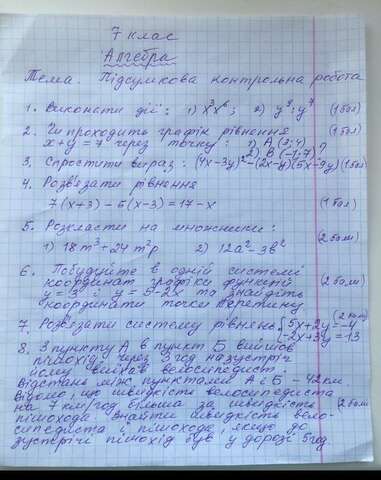 7 клас
Алгебра
Тема. Підсумкова контрольна робота
1. Виконати дії: 1) x³x⁶; 2) y⁸:y⁷ (1 бал)
2. Чи проходить графік рівняння (1 бал)
x+y=7 через точку: 1) A(3;4) ?
2) B(-1;7)
3. Спростити вираз: (4x-3y)²-(2x-y)(5x-3y) (1 бал)
4. Розв'язати рівняння
7(x+3)-5(x-3)=17-x (1 бал)
5. Розкласти на множники: (2 бали)
1) 18m³+24m²p 2) 12a²-3b²
6. Побудуйте в одній системі
координат графіки функцій (2 бали)
y=3 і y=5-2x та знайдіть
координати точки перетину
(2 бали)
7. Розв'язати систему рівнянь {5x+2y=-4
-2x+3y=13
8. З пункту А в пункт Б вийшов
пішохід, через 3 год назустріч
йому виїхав велосипедист.
Відстань між пунктами А і Б - 42 км.
Відомо, що швидкість велосипедиста
на 7 км/год більша за швидкість
пішохода. Знайти швидкість вело- (2 бали)
сипедиста і пішохода, якщо до
зустрічі пішохід був у дорозі 5 год